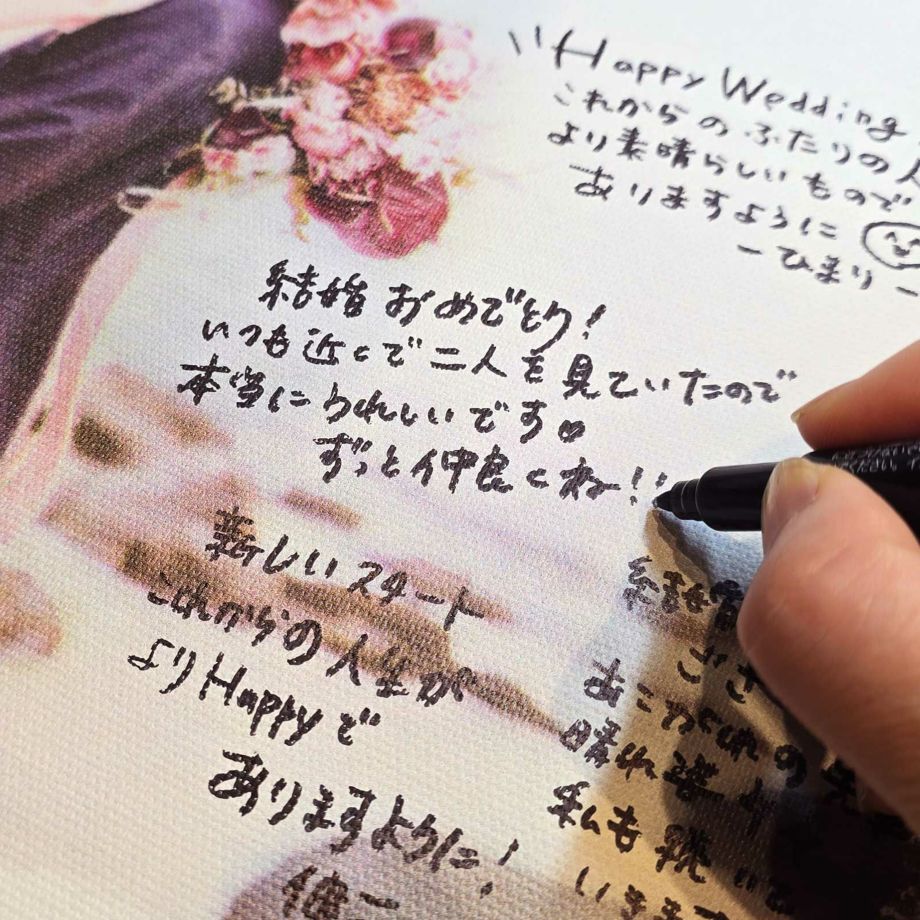 Happy Wedding
これからのふたりの人
より素晴らしいもので
ありますように
ーひまりー
結婚おめでとう!
いつも近くで二人を見ていたので
本当にうれしいです♡
ずっと仲良くね!!
新しいスタート
これからの人生が
よりHappyで
ありますように!
健二
結婚
ござ
あこがれの
晴れ姿
私も続いて
います